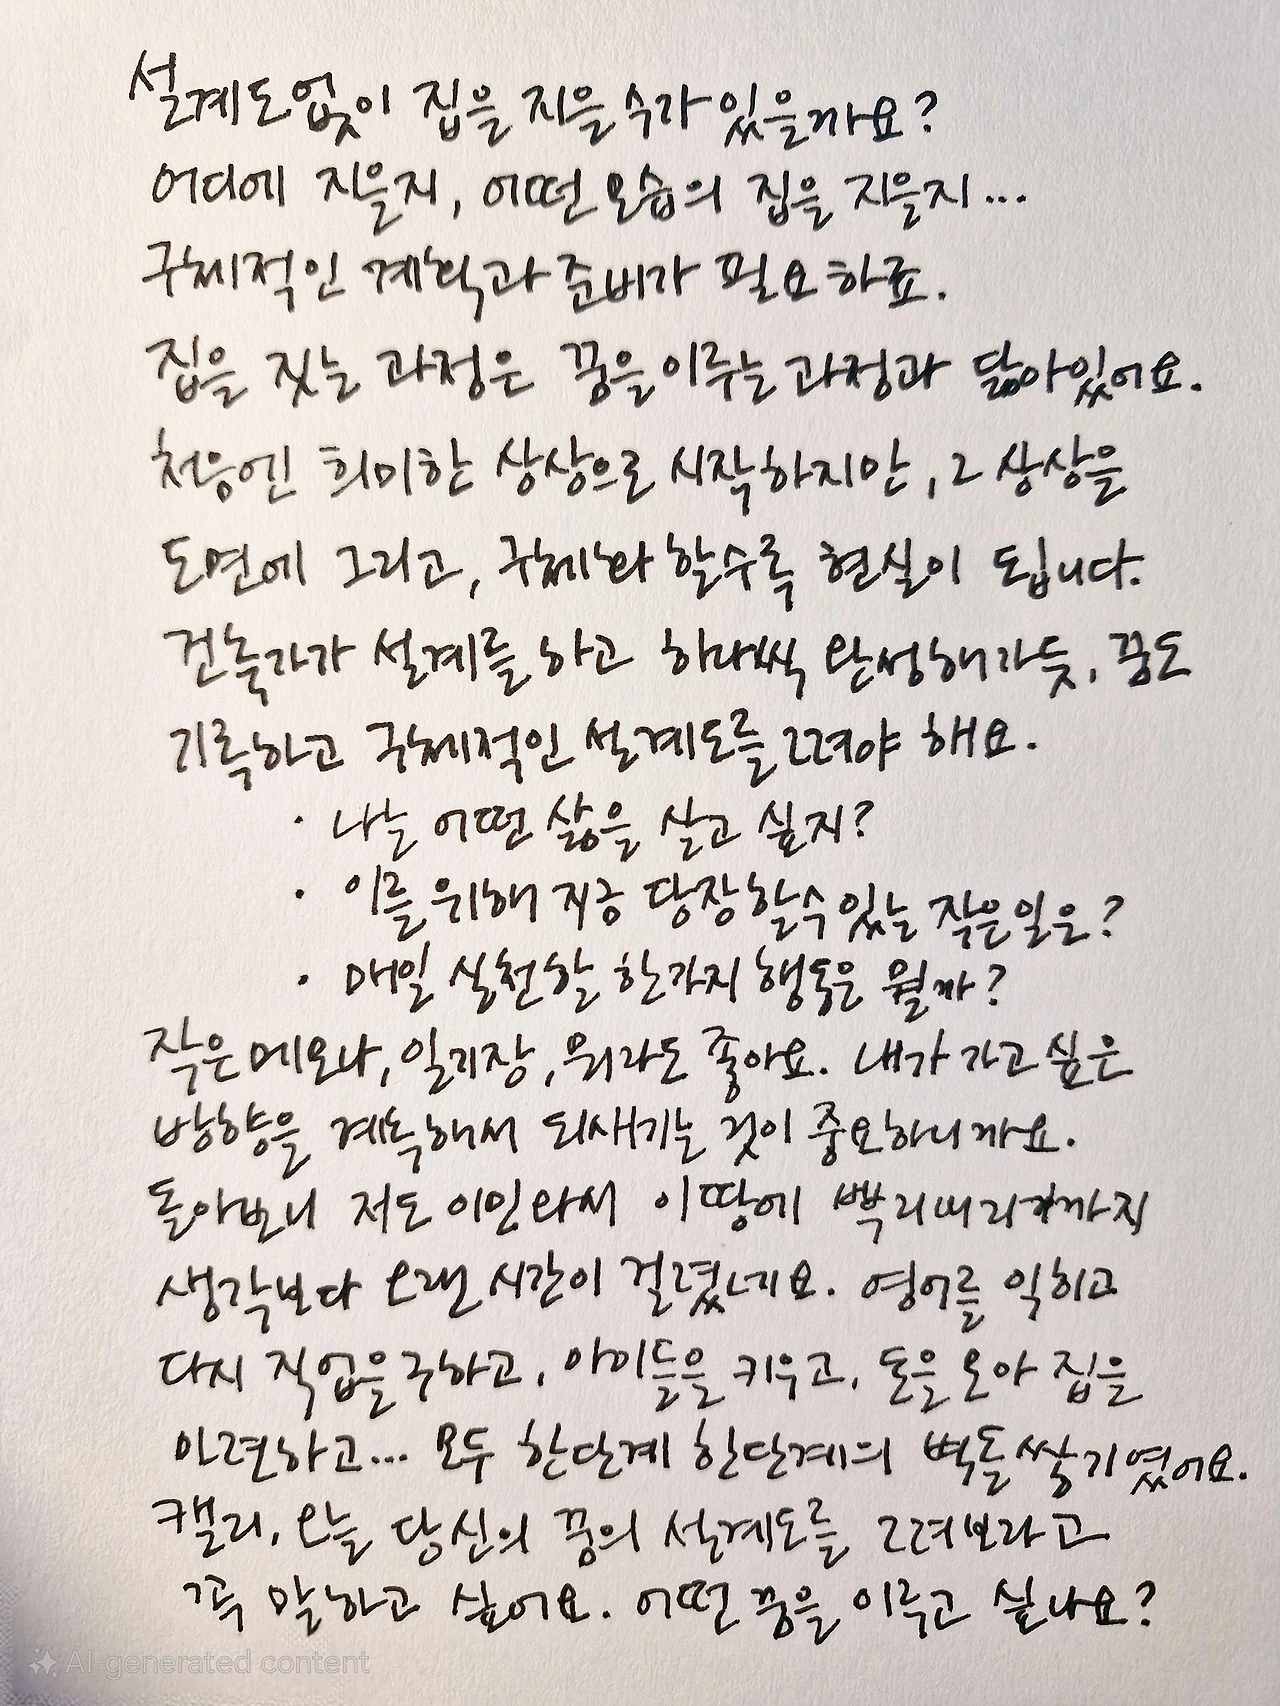 설계도 없이 집을 지을 수가 있을까요?
어디에 지을지, 어떤 모습의 집을 지을지...
구체적인 계획과 준비가 필요하죠.
집을 짓는 과정은 꿈을 이루는 과정과 닮아있어요.
처음엔 희미한 상상으로 시작하지만, 그 상상을
도면에 그리고, 구체화 할수록 현실이 됩니다.
건축가가 설계를 하고 하나씩 완성해가듯, 꿈도
기록하고 구체적인 설계도를 그려야 해요.
· 나는 어떤 삶을 살고 싶지?
· 이를 위해 지금 당장 할 수 있는 작은 일은?
· 매일 실천할 한가지 행동은 뭘까?
작은 메모나, 일기장, 뭐라도 좋아요. 내가 가고 싶은
방향을 계속해서 되새기는 것이 중요하니까요.
돌아보니 저도 이민와서 이 땅에 뿌리내리기까지
생각보다 오랜 시간이 걸렸네요. 영어를 익히고
다시 직업을 구하고, 아이들을 키우고, 돈을 모아 집을
마련하고... 모두 한단계 한단계의 벽돌 쌓기였어요.
캘리, 오늘 당신의 꿈의 설계도를 그려보라고
꼭 말하고 싶어요. 어떤 꿈을 이루고 싶나요?
AI-generated content